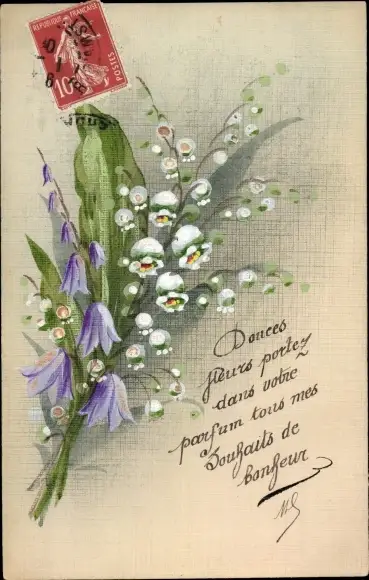 REPUBLIQUE FRANÇAISE
10c
POSTES
Douces
fleurs portez
dans votre
parfum tous mes
Souhaits de
bonheur